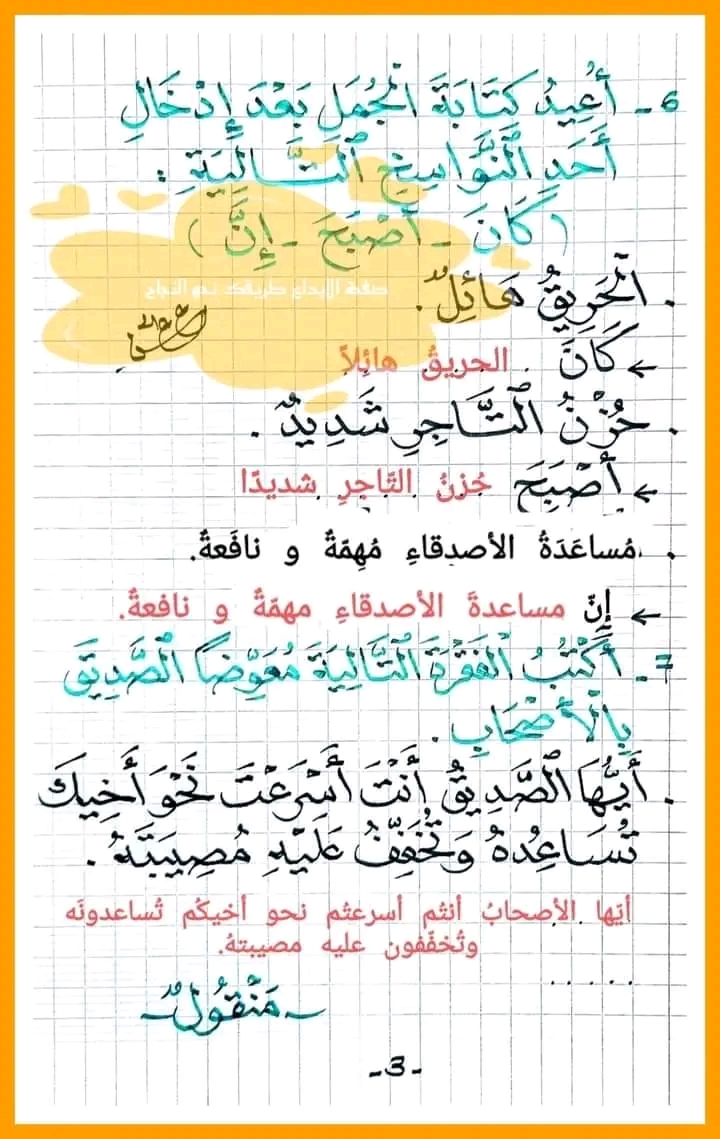 6 - أُعِيدُ كِتَابَةَ الْجُمَلِ بَعْدَ إِدْخَالِ
أَحَدِ ٱلنَّوَاسِخِ ٱلتَّالِيَةِ :
(كَانَ - أَصْبَحَ - إِنَّ)
صفحة الإبداع طريقك نحو النجاح
. الْحَرِيقُ هَائِلٌ .
← كَانَ . الحريقُ هائِلاً
. حُزْنُ ٱلتَّاجِرِ شَدِيدٌ .
← أَصْبَحَ حُزنُ التّاجرِ شديدًا
. مُساعَدَةُ الأصدقاءِ مُهِمّةٌ و نافَعةٌ.
← إنّ مساعدةَ الأصدقاءِ مهمّةٌ و نافعةٌ.
7 - أَكْتُبُ ٱلْفَقْرَةَ ٱلتَّالِيَةَ مُعَوِّضًا ٱلصَّدِيقَ
بِالْأَصْحَابِ .
. أَيُّهَا ٱلصَّدِيقُ أَنْتَ أَسْرَعْتَ نَحْوَ أَخِيكَ
تُسَاعِدُهُ وَتُخَفِّفُ عَلَيْهِ مُصِيبَتَهُ .
أيّها الأصحابُ أنتُم أسرعتُم نحو أخيكُم تُساعدونَه
وتُخفّفون عليه مصيبتهُ.
.....
- مَنْقُولٌ -
-3-